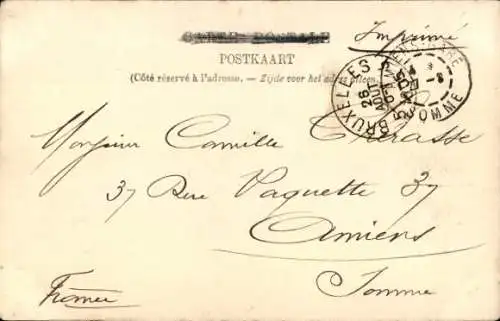 CARTE POSTALE
Imprimé
POSTKAART
(Côté réservé à l'adresse. — Zijde voor het adres alleen.)
BRUXELLES
26
AOUT
GARE
SOMME
Monsieur Camille Cherasse
37 Rue Vaquette 37
Amiens
Somme
France